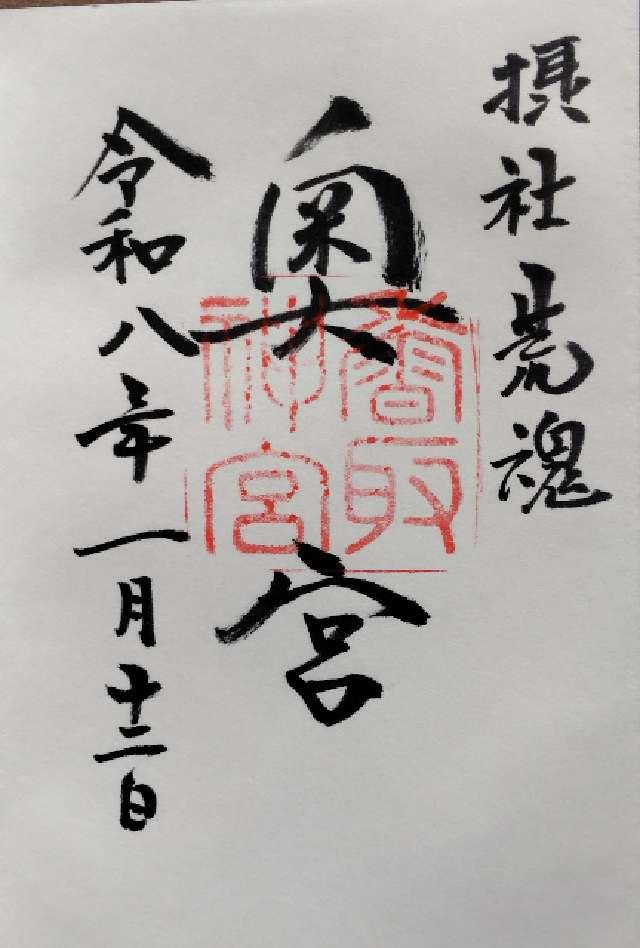 摂社荒魂
奥宮
香取神宮
令和八年一月十二日